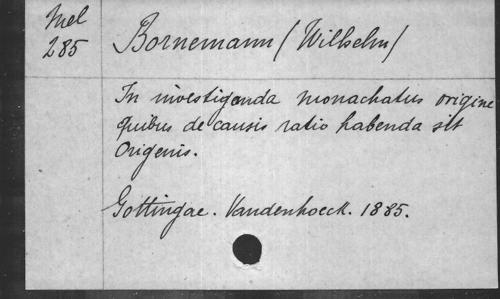 Mel
285
Bornemann (Wilhelm)
In investiganda monachatus origine
quibus de causis ratio habenda sit
Origenis.
Gottingae. Vandenhoeck. 1885.